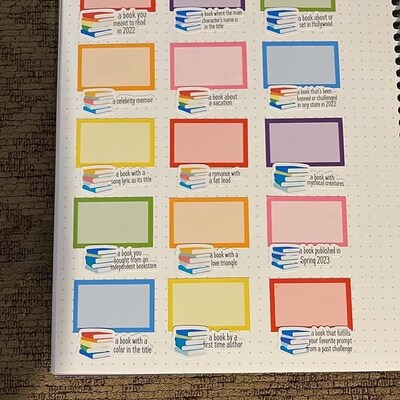 a book you
meant to read
in 2022
a book where the main
character's name is
in the title
a book about or
set in Hollywood
a celebrity memoir
a book about
a vacation
a book that's been
banned or challenged
in any state in 2022
a book with a
song lyric as its title
a romance with
a fat lead
a book with
mythical creatures
a book you
bought from an
independent bookstore
a book with a
love triangle
a book published in
Spring 2023
a book with a
color in the title
a book by a
first time author
a book that fulfills
your favorite prompt
from a past challenge